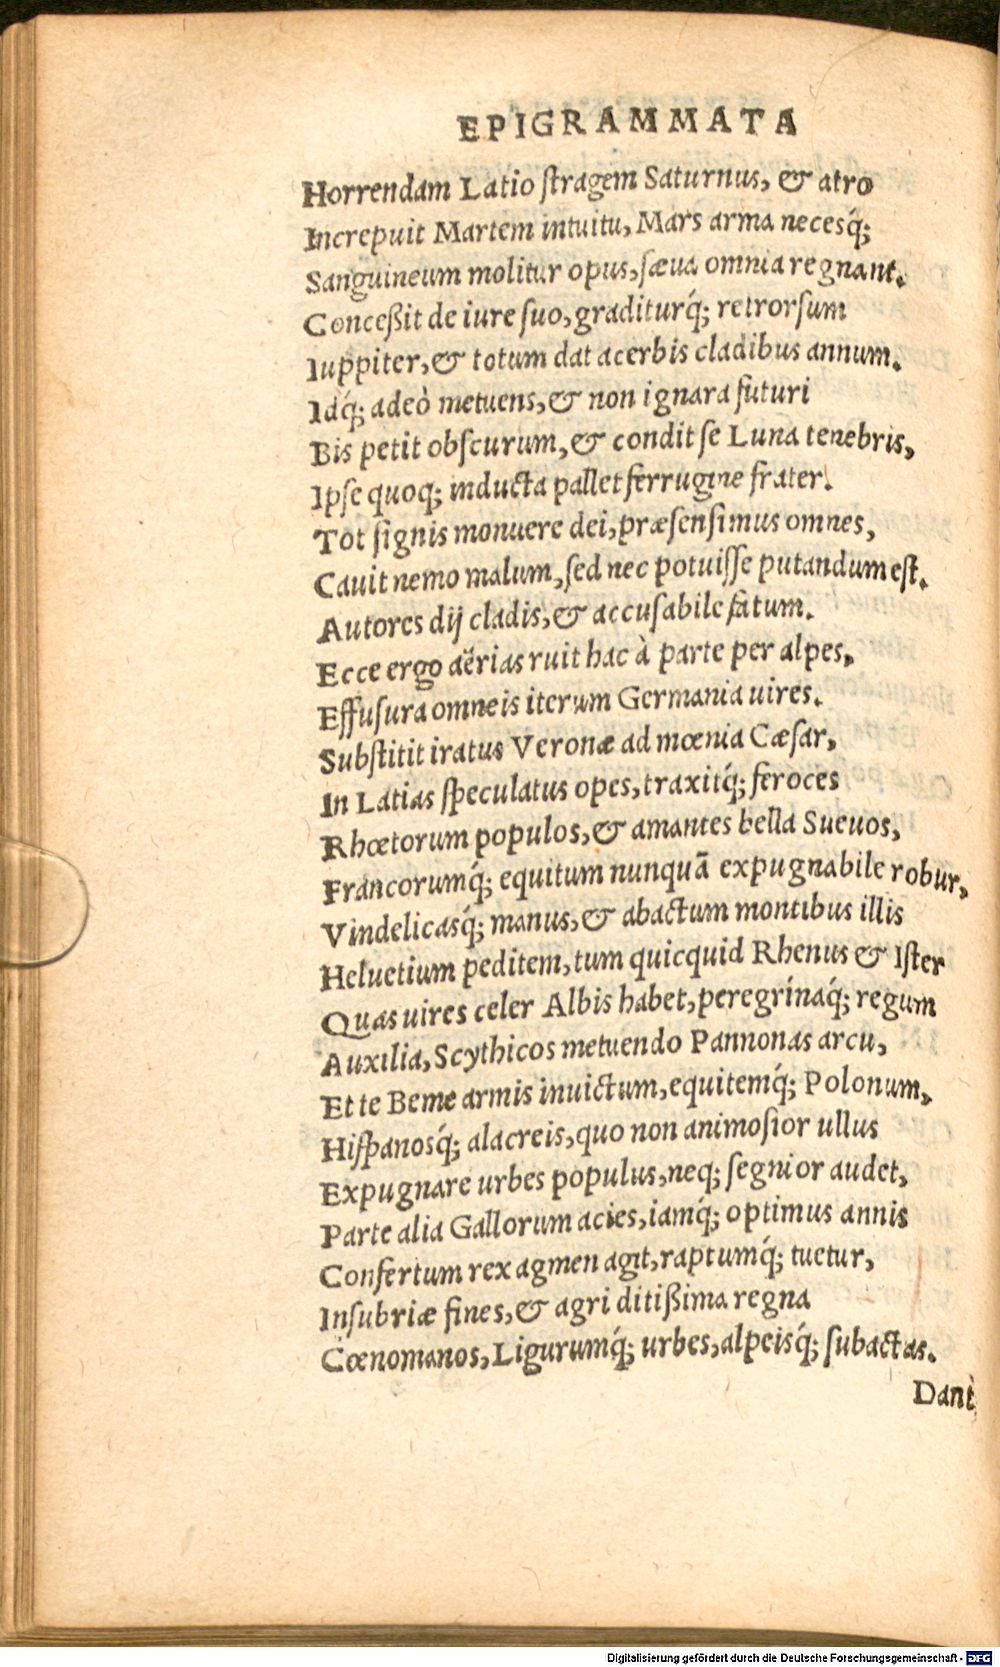 EPIGRAMMATA
Horrendam Latio stragem Saturnus, & atro
Increpuit Martem intuitu, Mars arma necesq́;
Sanguineum molitur opus, sæua omnia regnant.
Conceßit de iure suo, graditurq́; retrorsum
Iuppiter, & totum dat acerbis cladibus annum.
Idq́; adeò metuens, & non ignara futuri
Bis petit obscurum, & condit se Luna tenebris,
Ipse quoq; inducta pallet ferrugine frater.
Tot signis monuere dei, præsensimus omnes,
Cauit nemo malum, sed nec potuisse putandum est.
Autores dij cladis, & accusabile fatum.
Ecce ergo aërias ruit hac à parte per alpes,
Effusura omneis iterum Germania uires.
Substitit iratus Veronæ ad mœnia Cæsar,
In Latias speculatus opes, traxitq́; feroces
Rhœtorum populos, & amantes bella Sueuos,
Francorumq́; equitum nunquā expugnabile robur,
Vindelicasq́; manus, & abactum montibus illis
Heluetium peditem, tum quicquid Rhenus & Ister
Quas uires celer Albis habet, peregrinaq́; regum
Auxilia, Scythicos metuendo Pannonas arcu,
Et te Beme armis inuictum, equitemq́; Polonum,
Hispanosq́; alacreis, quo non animosior ullus
Expugnare urbes populus, neq; segnior audet,
Parte alia Gallorum acies, iamq́; optimus annis
Confertum rex agmen agit, raptumq́; tuetur,
Insubriæ fines, & agri ditißima regna
Cœnomanos, Ligurumq́; urbes, alpeisq́; subactas.
Dant
Digitalisierung gefördert durch die Deutsche Forschungsgemeinschaft - DFG